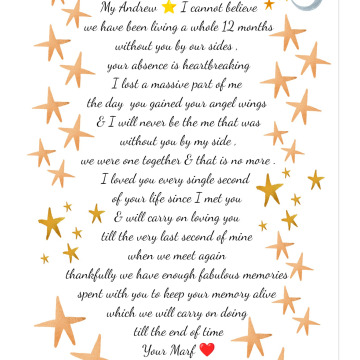 My Andrew ⭐ I cannot believe
we have been living a whole 12 months
without you by our sides ,
your absence is heartbreaking
I lost a massive part of me
the day you gained your angel wings
& I will never be the me that was
without you by my side ,
we were one together & that is no more .
I loved you every single second
of your life since I met you
& will carry on loving you
till the very last second of mine
when we meet again
thankfully we have enough fabulous memories
spent with you to keep your memory alive
which we will carry on doing
till the end of time
Your Marf ❤️